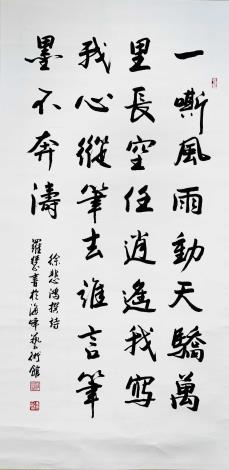 一嘶風雨動天驕萬
里長空任逍遙我寫
我心縱筆去誰言筆
墨不奔濤
徐悲鴻撰詩
羅楚書於海峰藝術館